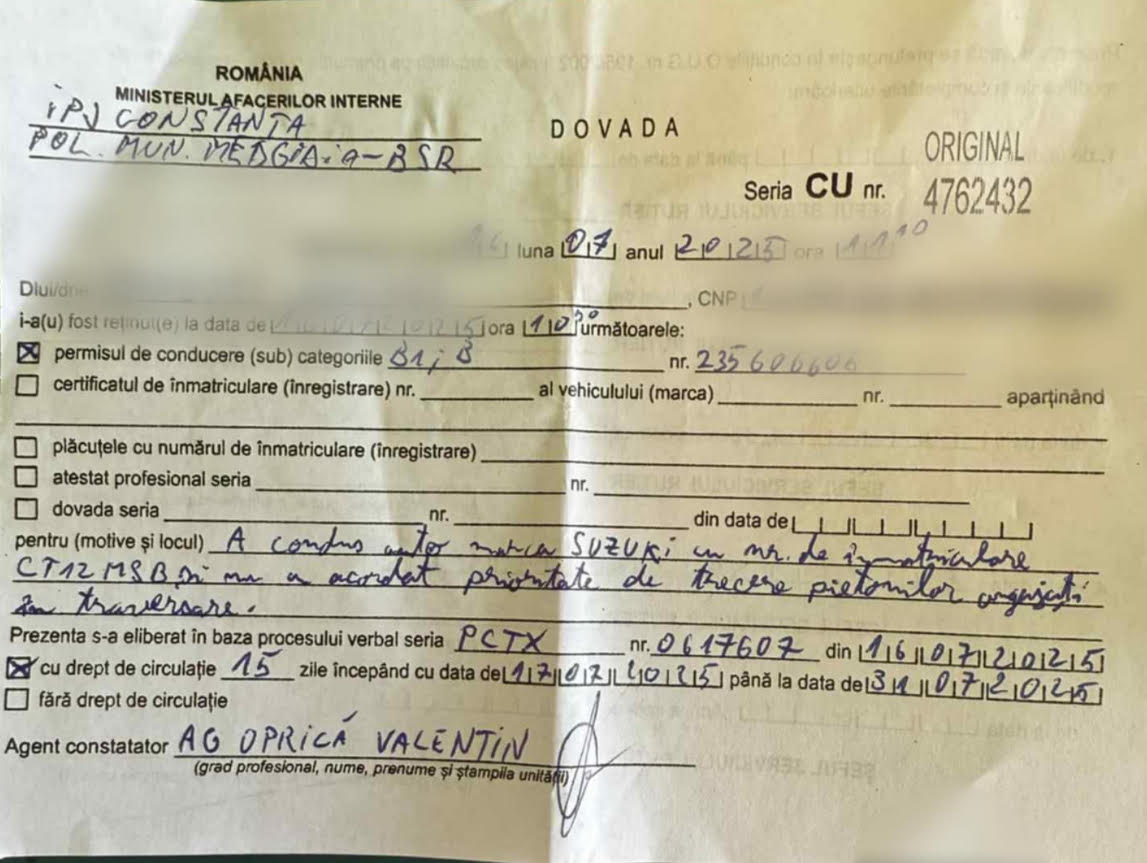 ROMÂNIA
MINISTERUL AFACERILOR INTERNE
IPJ CONSTANȚA
POL. MUN. MEDGIDIA-BSR
DOVADA
ORIGINAL
Seria CU nr. 4762432
luna 07 anul 2025 ora 11 10
Dlui/dnei , CNP
i-a(u) fost reținut(e) la data de 16 07 2025 ora 10 30 următoarele:
permisul de conducere (sub) categoriile B1; B nr. 235606606
certificatul de înmatriculare (înregistrare) nr. al vehiculului (marca) nr. aparținând
plăcuțele cu numărul de înmatriculare (înregistrare)
atestat profesional seria nr.
dovada seria nr. din data de
pentru (motive și locul) A condus autor marca SUZUKI cu nr. de înmatriculare
CT12MSB și nu a acordat prioritate de trecere pietonilor angajați
în traversare.
Prezenta s-a eliberat în baza procesului verbal seria PCTX nr. 0617607 din 16 07 2025
cu drept de circulație 15 zile începând cu data de 17 07 2025 până la data de 31 07 2025
fără drept de circulație
Agent constatator AG OPRICĂ VALENTIN
(grad profesional, nume, prenume și ștampila unității)